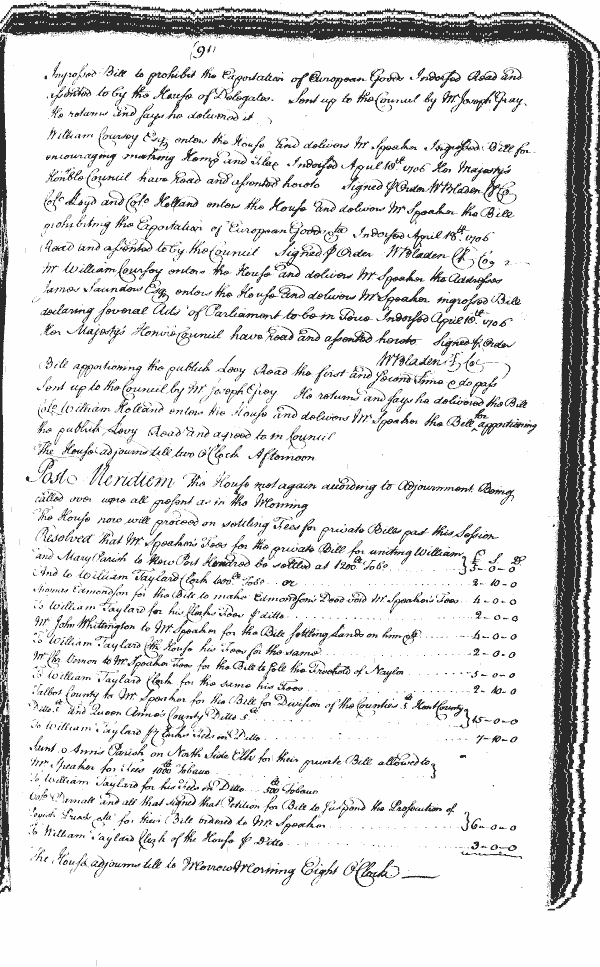 (91)
Ingrossed Bill to prohibit the Exportation of European Goods Indorsed Read and
assented to by the House of Delegates. Sent up to the Council by Mr Joseph Gray.
He returns and says he delivered it
William Coursey Esqr enters the House and delivers Mr Speaker Ingrossed Bill for
encouraging making Hemp and Flax Indorsed April 18th 1706 Her Majestys
Honble Council have Read and assented hereto Signed p Order W Bladen Cl Co
Colo Lloyd and Colo Holland enters the House and delivers Mr Speaker the Bill
prohibiting the Exportation of European Goods &ca Indorsed April 18th 1706
Read and assented to by the Council Signed p Order W Bladen Cl Co
Mr William Coursey enters the House and delivers Mr Speaker the Addresses
James Saunders Esqr enters the House and delivers Mr Speaker ingrossed Bill
declaring several Acts of Parliament to be in Force Indorsed April 18th 1706
Her Majestys Honble Council have Read and assented hereto Signed p Order
W Bladen Cl Co
Bill apportioning the publick Levy Read the first and Second Time & do pass
Sent up to the Council by Mr Joseph Grey He returns and says he delivered the Bill
Colo William Holland enters the House and delivers Mr Speaker the Bill for apportioning
the publick Levy Read and agreed to in Council
The House adjourns till two o'Clock Afternoon
Post Meridiem the House met again according to Adjournment Being
called over were all present as in the Morning
The House now will proceed on settling Fees for private Bills past this Session
Resolved that Mr Speakers Fees for the private Bill for uniting William
and Mary Parish to New Port Hundred be settled at 1200lb Tobo } 5-0-0
And to William Taylard Clerk 600lb Tobo or 2-10-0
Thomas Edmondson for the Bill to make Edmondsons Deed void Mr Speakers Fees 4-0-0
To William Taylard for his Clerks Fees p ditto 2-0-0
Mr John Whittington to Mr Speaker for the Bill settling Lands on him &ca 4-0-0
To William Taylard Clk House his Fees for the same 2-0-0
Mr Chr Vernon to Mr Speaker Fees for the Bill to sell the Freehold of Naylor 5-0-0
To William Taylard Clerk for the same his Fees 2-10-0
Talbot County to Mr Speaker for the Bill for Division of the Counties 5lb Kent County
Ditto 5lb and Queen Anne's County Ditto 5lb } 15-0-0
To William Taylard p Clerks Fees on Ditto 7-10-0
Saint Anns Parish on North Side Elk for their private Bill allowed to
Mr Speaker for Fees 1000lb Tobacco }
To William Taylard for his Fees on Ditto 500lb Tobacco
Colo Darnall and all that signed that Petition for Bill to suspend the Prosecution of
Popish Priests &ca for their Bill ordered to Mr Speaker } 6-0-0
To William Taylard Clerk of the House p Ditto 3-0-0
The House adjourns till to Morrow Morning Eight O'Clock